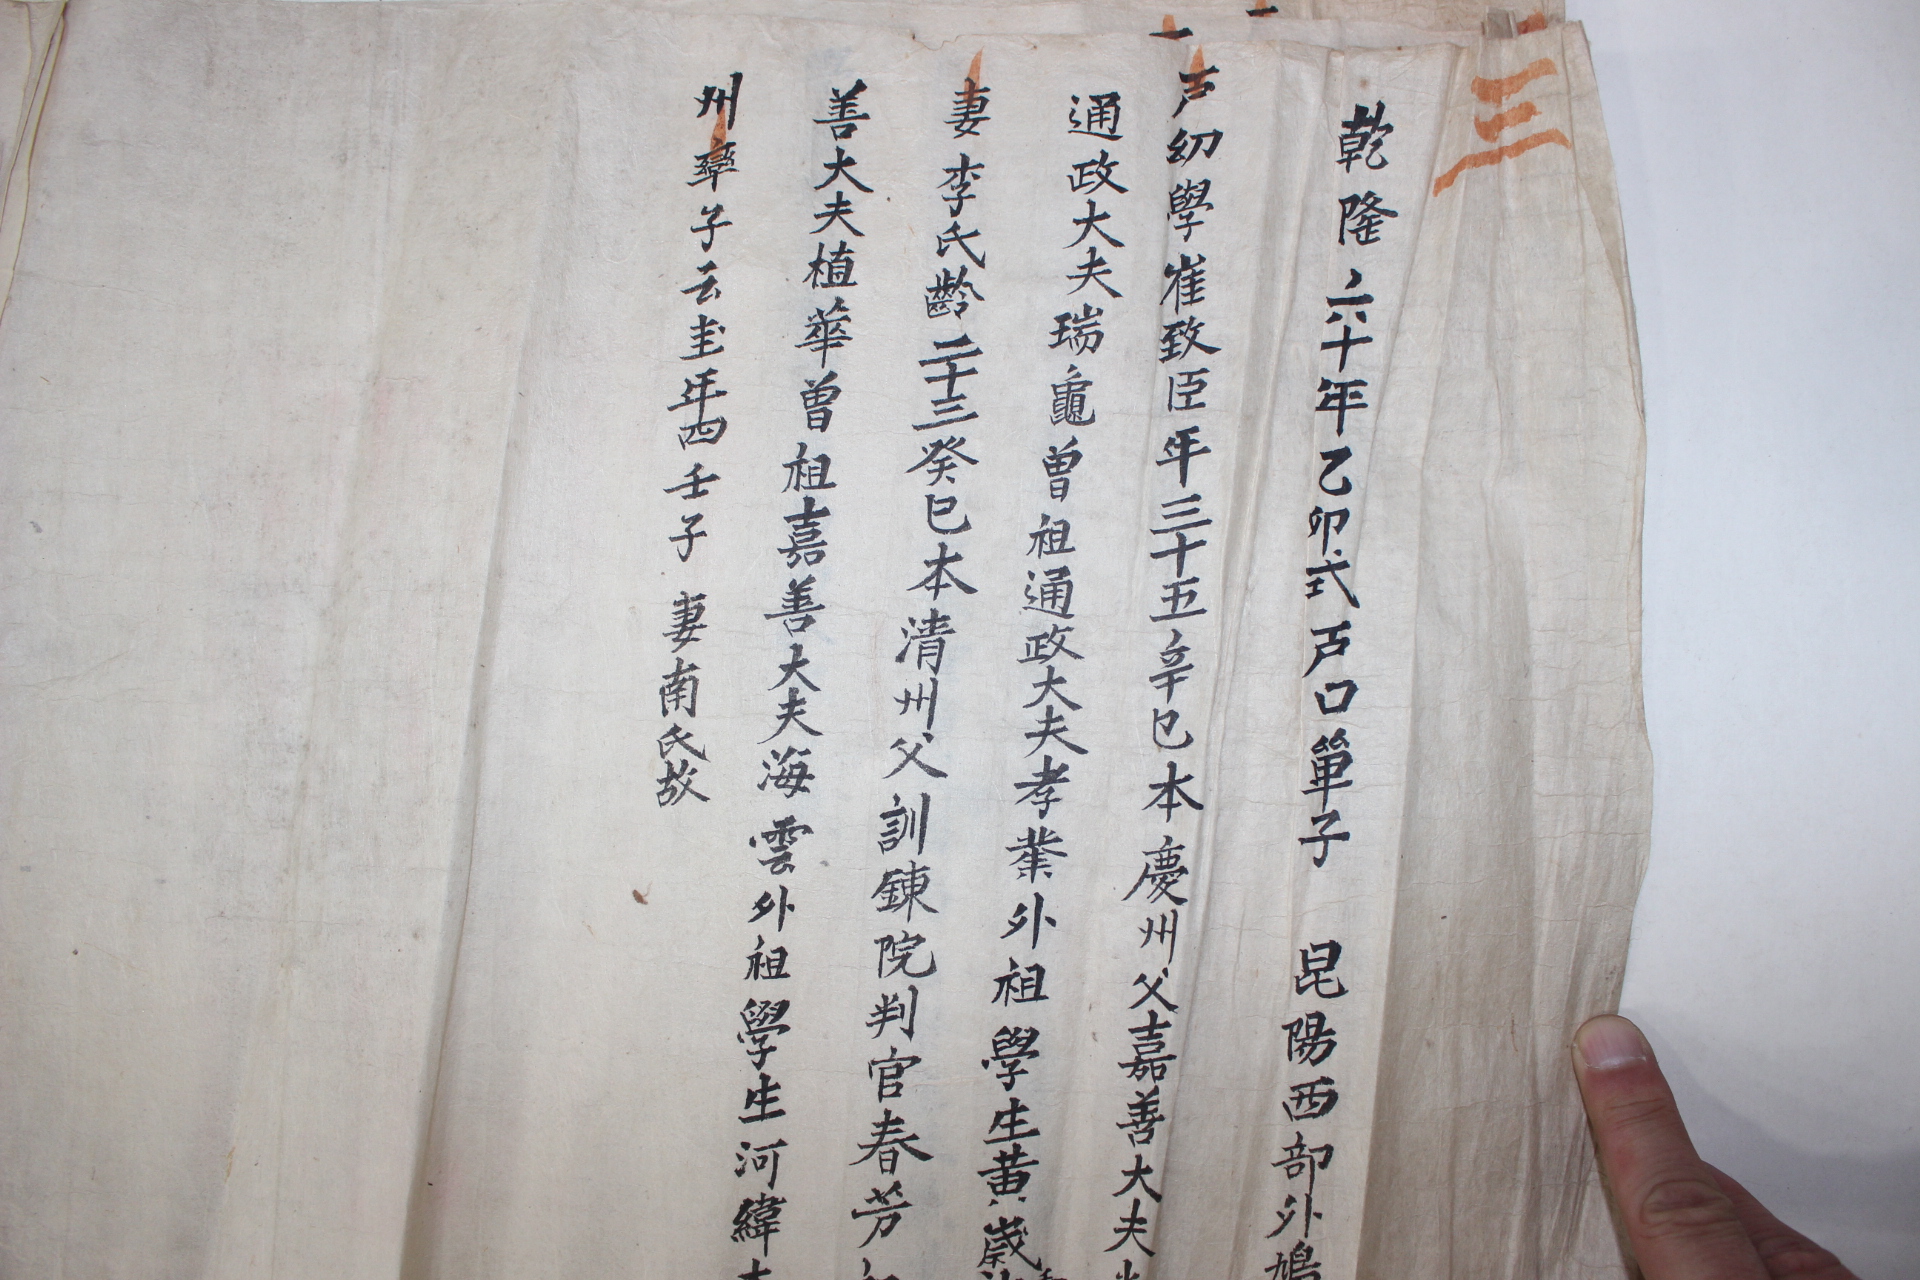 三
乾隆六十年乙卯式戶口單子 昆陽西部外鳩
戶幼學崔致臣年三十五辛巳本慶州父嘉善大夫
通政大夫瑞龜曾祖通政大夫孝業外祖學生黃歲
妻李氏齡二十三癸巳本清州父訓鍊院判官春芳
善大夫植華曾祖嘉善大夫海雲外祖學生河緯本
州率子云圭年四壬子 妻南氏故